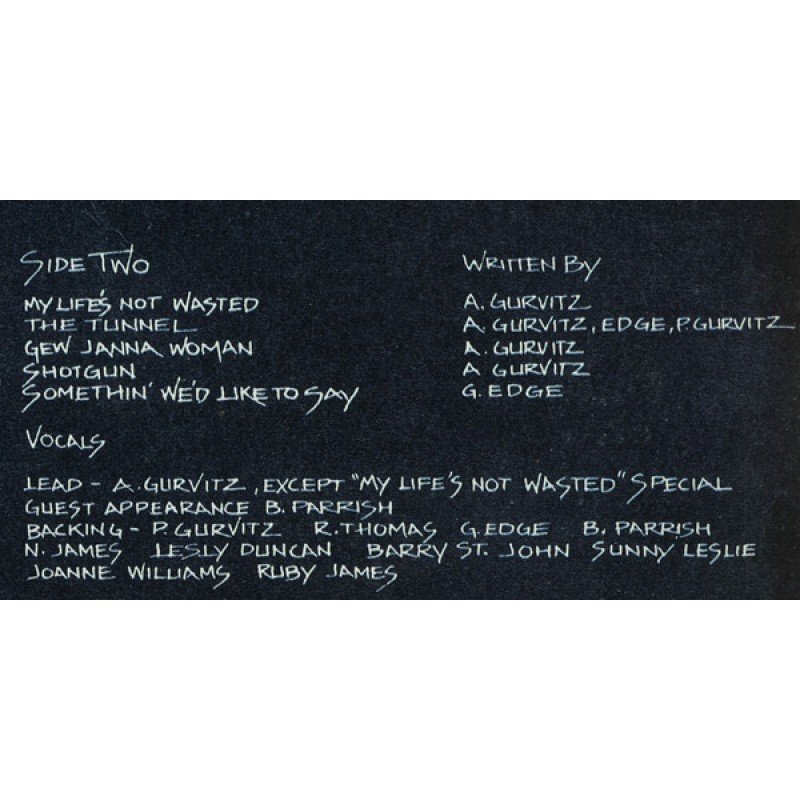 SIDE TWO WRITTEN BY
MY LIFE'S NOT WASTED A. GURVITZ
THE TUNNEL A. GURVITZ, EDGE, P. GURVITZ
GEW JANNA WOMAN A. GURVITZ
SHOTGUN A GURVITZ
SOMETHIN' WE'D LIKE TO SAY G. EDGE
VOCALS
LEAD - A. GURVITZ, EXCEPT "MY LIFE'S NOT WASTED" SPECIAL
GUEST APPEARANCE B. PARRISH
BACKING - P. GURVITZ R. THOMAS G. EDGE B. PARRISH
N. JAMES LESLY DUNCAN BARRY ST. JOHN SUNNY LESLIE
JOANNE WILLIAMS RUBY JAMES